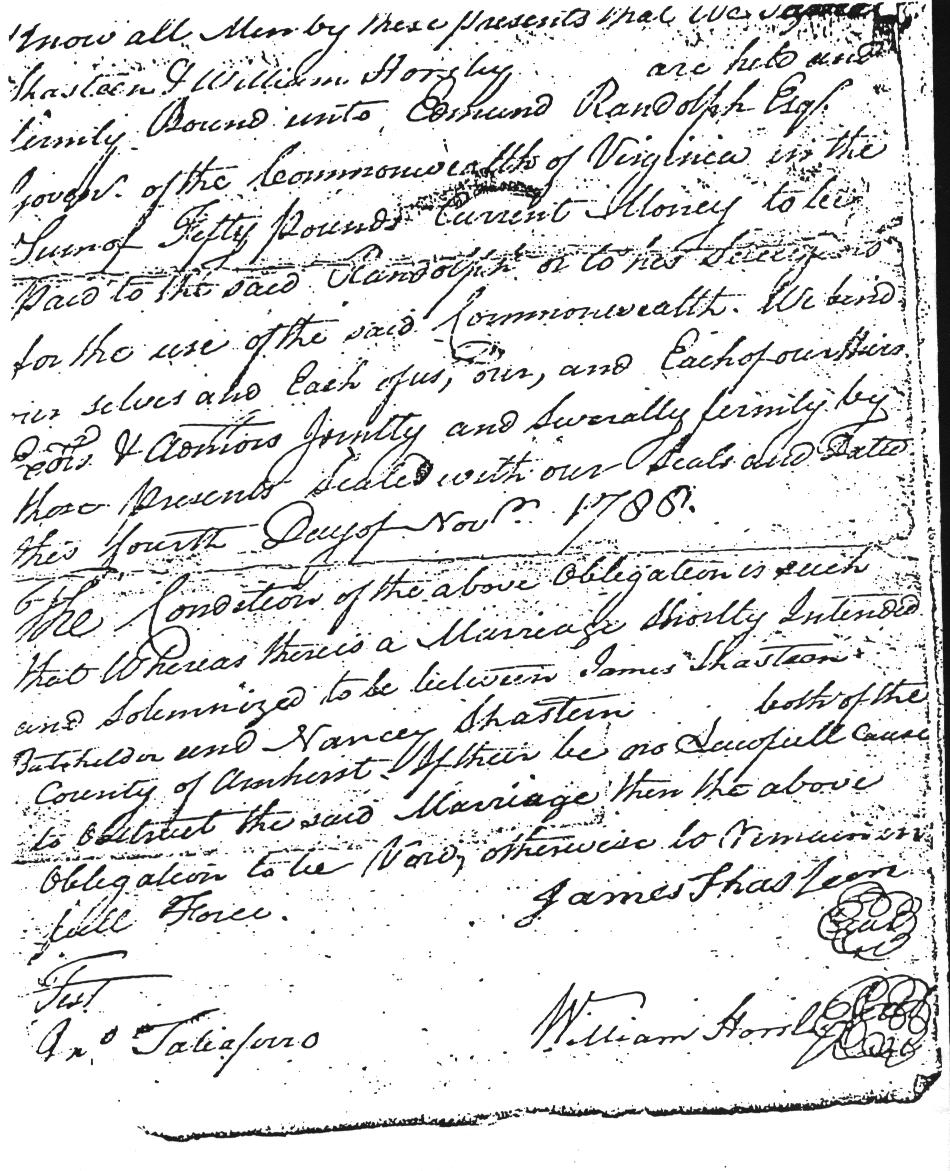 Know all Men by these presents that We James
Shasteen & William Horsley are held and
firmly Bound unto Edmund Randolph Esqr.
Govenr. of the Commonwealth of Virginia in the
Sum of Fifty Pounds Current Money to be
Paid to the said Randolph or to his Successors
for the use of the said Commonwealth. We bind
our selves and Each of us, our, and Each of our Heirs
Exors & Admtors Jointly and Severally firmly by
these Presents Sealed with our Seals and Dated
this fourth Day of Novr. 1788.
The Condition of the above Obligation is such
that Whereas there is a Marriage Shortly Intended
and Solemnized to be between James Shasteen
Batchelder and Nancey Shasteen both of the
County of Amherst. If their be no Lawfull Cause
to Obstruct the said Marriage then the above
Obligation to be Void, otherwise to Remain in
full Force.
James Shasteen
Seal
Test
Jno. Taliaferro
William Horsley
Seal